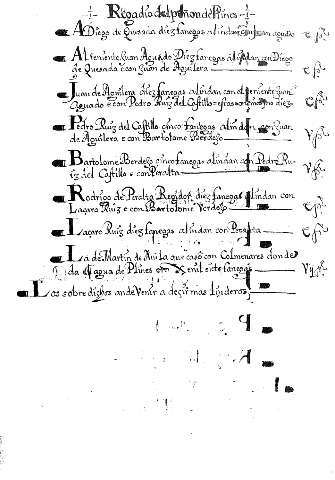 Regadio del peñon de Pinos
A Diego de Quesada diez fanegas alindan con Juan aguado
Al teniente Juan Aguado Diez fanegas alindan con Diego
de Quesada e con Juan de Aguilera
Juan de Aguilera diez fanegas alindan con el teniente Juan
Aguado e con Pedro Ruiz del Castillo diez
Pedro Ruiz del Castillo cinco fanegas alindan con Juan
de Aguilera e con Bartolome Berdejo
Bartolome Berdejo cinco fanegas alindan con Pedro Ru
iz del Castillo e con Peralta
Rodrigo de Peralta Regidor diez fanegas alindan con
Laçaro Ruiz e con Bartolome Verdejo
Laçaro Ruiz diez fanegas alindan con Peralta
La de Martin de Avila que caso con Colmenares donde
agua de Pinos siete fanegas
Los sobre dichos an de venir a deçir mas linderos